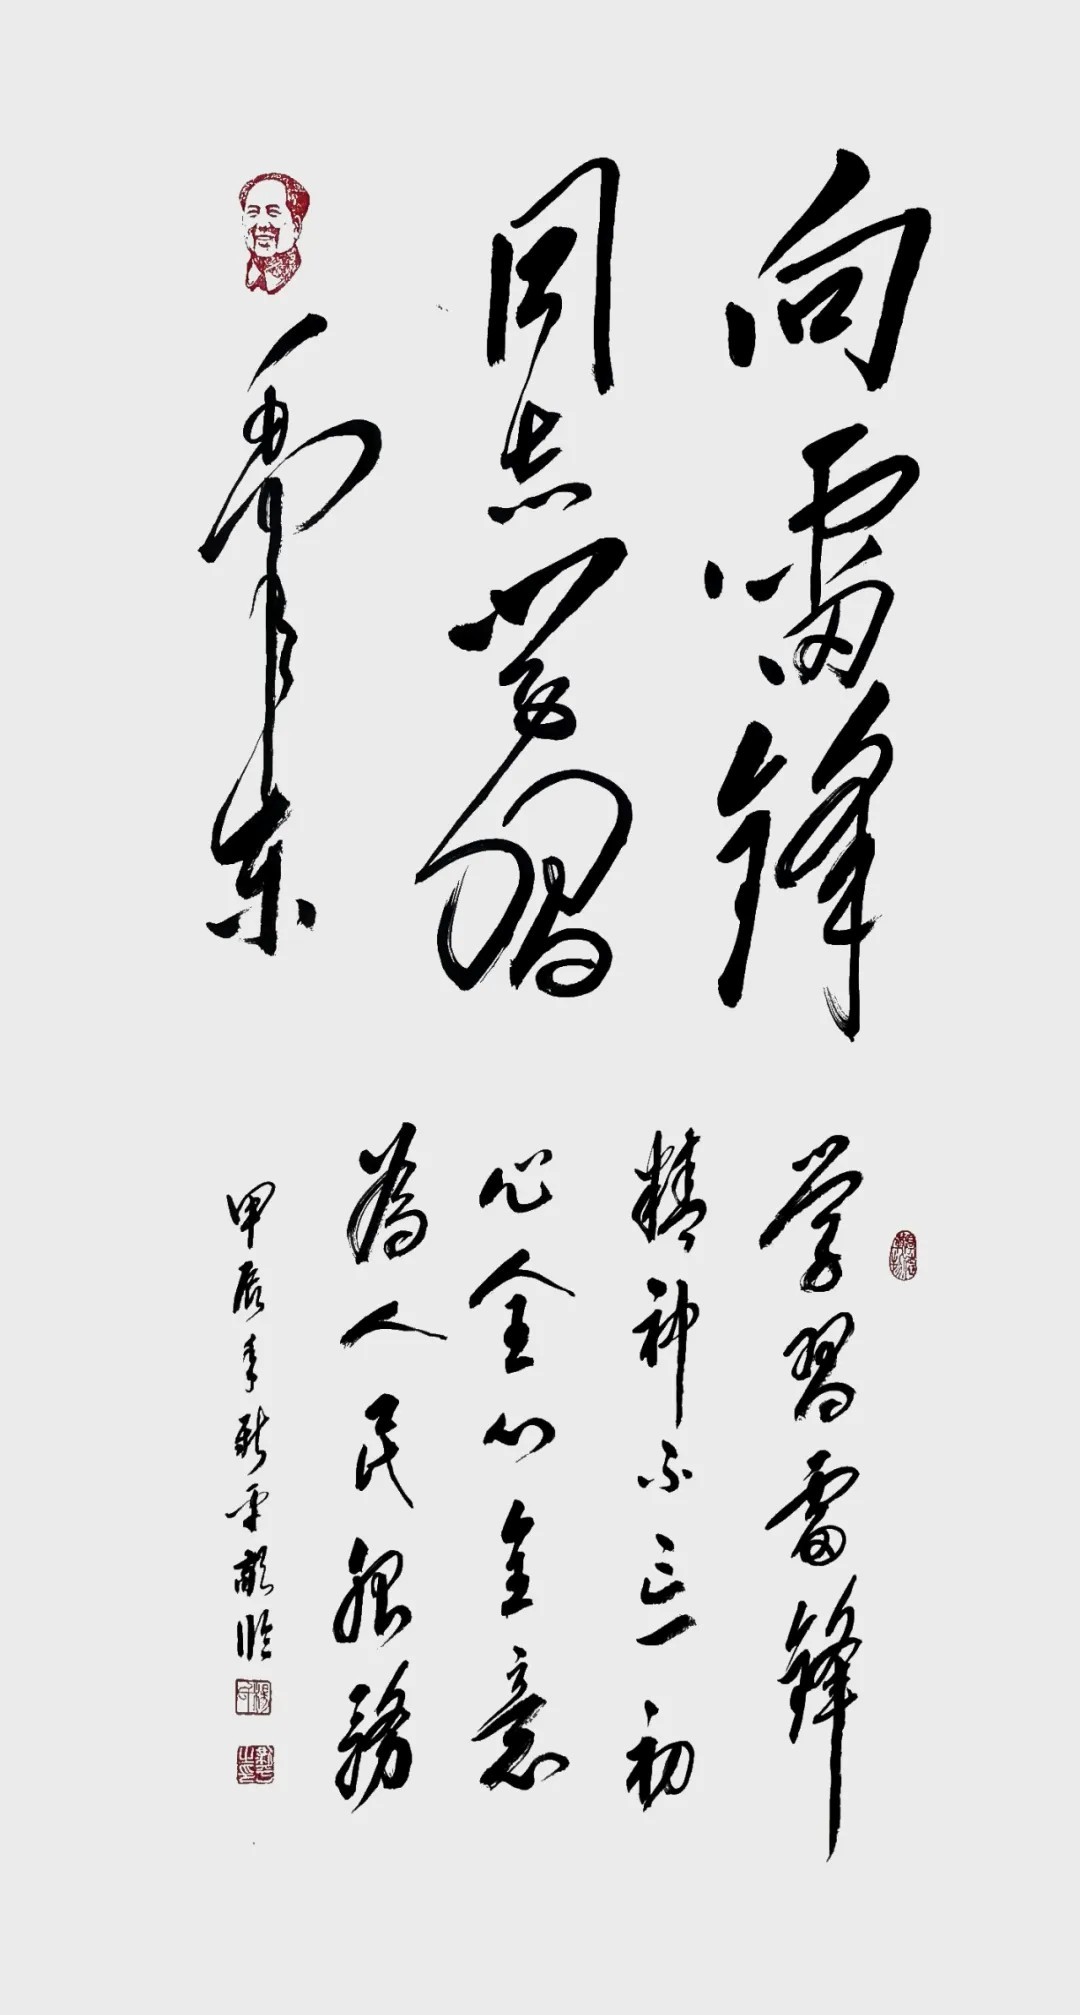 向雷锋
同志学习
毛东
学習雷锋
精神不忘初
心全心全意
为人民服務
甲辰年新平敬临